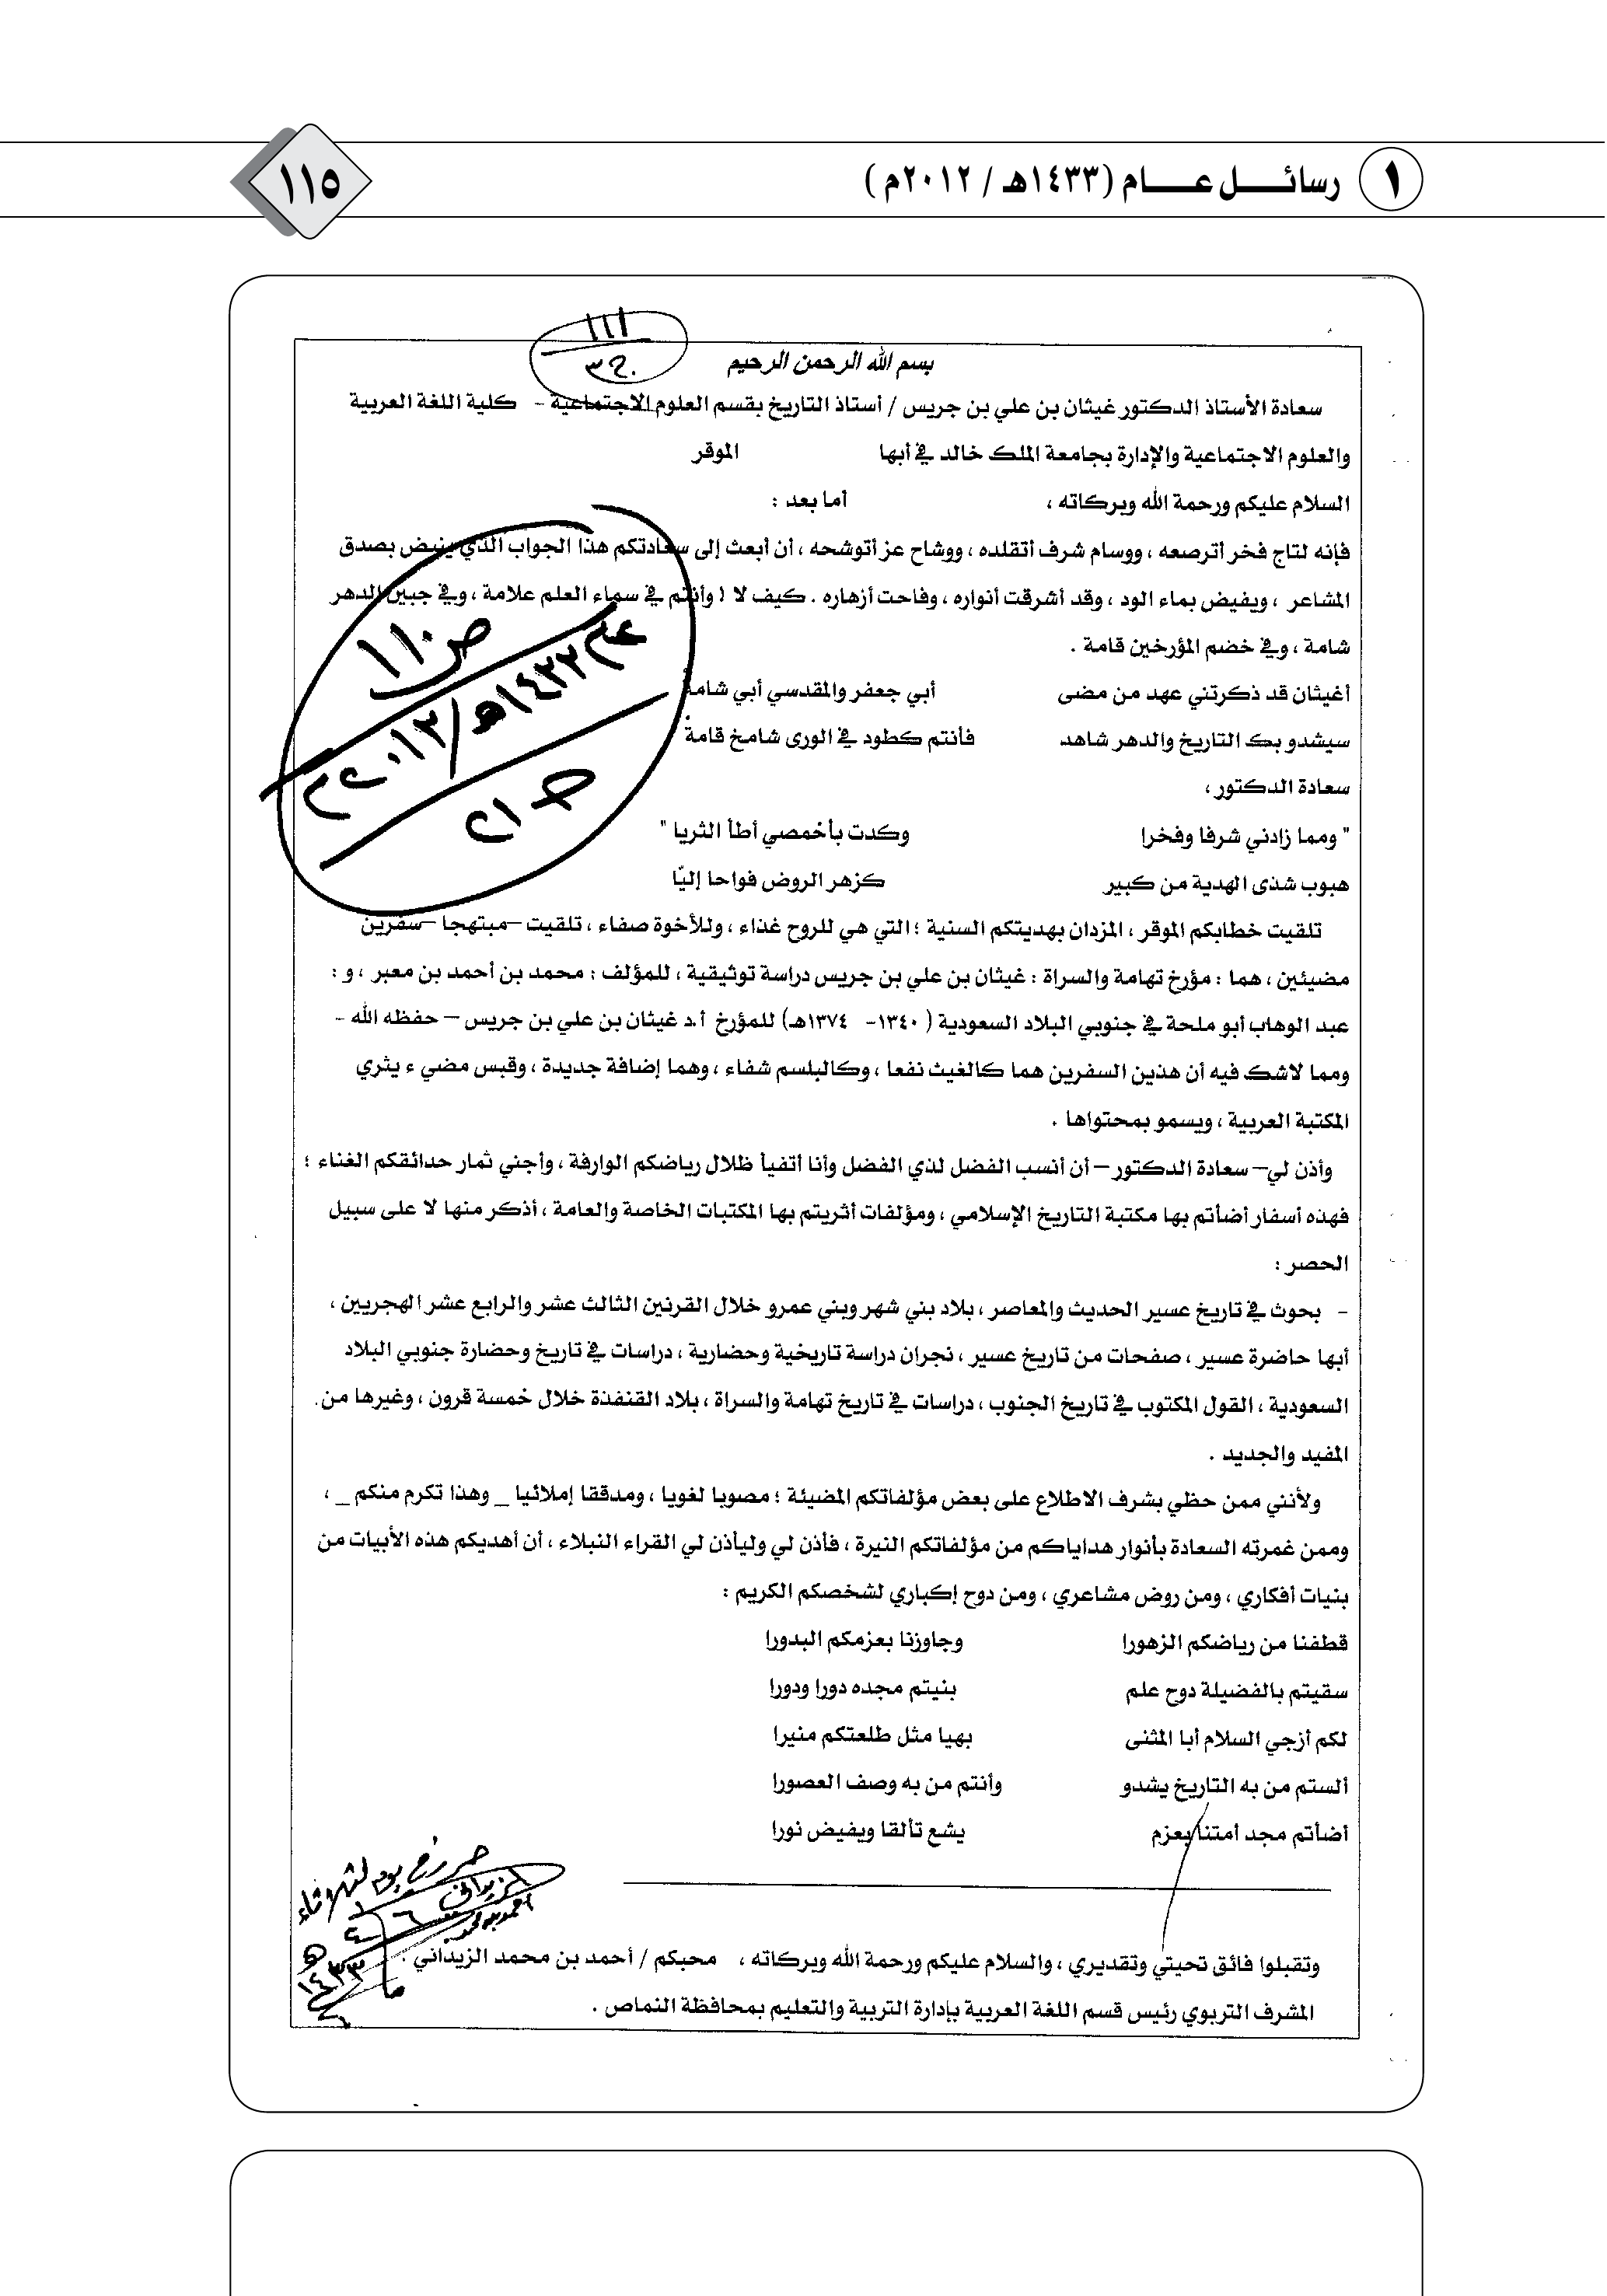 ١ رسائـــــل عـــــــام (١٤٣٣هـ / ٢٠١٢م )
١١٥
١١١
بسم الله الرحمن الرحيم
سعادة الأستاذ الدكتور غيثان بن علي بن جريس / أستاذ التاريخ بقسم العلوم الاجتماعية – كلية اللغة العربية
والعلوم الاجتماعية والإدارة بجامعة الملك خالد في أبها الموقر
السلام عليكم ورحمة الله وبركاته ، أما بعد :
فإنه لتاج فخر أترصعه ، ووسام شرف أتقلده ، ووشاح عز أتوشحه ، أن أبعث إلى سعادتكم هذا الجواب الذي ينبض بصدق
المشاعر ، ويفيض بماء الود ، وقد أشرقت أنواره ، وفاحت أزهاره . كيف لا ! وأنتم في سماء العلم علامة ، وفي جبين الدهر
شامة ، وفي خضم المؤرخين قامة .
أغيثان قد ذكرتني عهد من مضى أبي جعفر والمقدسي أبي شامةْ
سيشدو بك التاريخ والدهر شاهد فأنتم كطود في الورى شامخ قامةْ
سعادة الدكتور ،
" ومما زادني شرفا وفخرا وكدت بأخمصي أطأ الثريا "
هبوب شذى الهدية من كبير كزهر الروض فواحا إليّا
تلقيت خطابكم الموقر ، المزدان بهديتكم السنية ؛ التي هي للروح غذاء ، وللأخوة صفاء ، تلقيت –مبتهجا –سفرين
مضيئين ، هما : مؤرخ تهامة والسراة : غيثان بن علي بن جريس دراسة توثيقية ، للمؤلف : محمد بن أحمد بن معبر ، و :
عبد الوهاب أبو ملحة في جنوبي البلاد السعودية ( ١٣٤٠- ١٣٧٤هـ) للمؤرخ أ.د غيثان بن علي بن جريس – حفظه الله -
ومما لاشك فيه أن هذين السفرين هما كالغيث نفعا ، وكالبلسم شفاء ، وهما إضافة جديدة ، وقبس مضيء يثري
المكتبة العربية ، ويسمو بمحتواها .
وأذن لي– سعادة الدكتور – أن أنسب الفضل لذي الفضل وأنا أتفيأ ظلال رياضكم الوارفة ، وأجني ثمار حدائقكم الغناء ؛
فهذه أسفار أضأتم بها مكتبة التاريخ الإسلامي ، ومؤلفات أثريتم بها المكتبات الخاصة والعامة ، أذكر منها لا على سبيل
الحصر :
- بحوث في تاريخ عسير الحديث والمعاصر ، بلاد بني شهر وبني عمرو خلال القرنين الثالث عشر والرابع عشر الهجريين ،
أبها حاضرة عسير ، صفحات من تاريخ عسير ، نجران دراسة تاريخية وحضارية ، دراسات في تاريخ وحضارة جنوبي البلاد
السعودية ، القول المكتوب في تاريخ الجنوب ، دراسات في تاريخ تهامة والسراة ، بلاد القنفذة خلال خمسة قرون ، وغيرها من
المفيد والجديد .
ولأنني ممن حظي بشرف الاطلاع على بعض مؤلفاتكم المضيئة ؛ مصوبا لغويا ، ومدققا إملائيا _ وهذا تكرم منكم _ ،
وممن غمرته السعادة بأنوار هداياكم من مؤلفاتكم النيرة ، فأذن لي وليأذن لي القراء النبلاء ، أن أهديكم هذه الأبيات من
بنيات أفكاري ، ومن روض مشاعري ، ومن دوح إكباري لشخصكم الكريم :
قطفنا من رياضكم الزهورا وجاوزنا بعزمكم البدورا
سقيتم بالفضيلة دوح علم بنيتم مجده دورا ودورا
لكم أزجي السلام أبا المثنى بهيا مثل طلعتكم منيرا
ألستم من به التاريخ يشدو وأنتم من به وصف العصورا
أضأتم مجد أمتنا بعزم يشع تألقا ويفيض نورا
وتقبلوا فائق تحيتي وتقديري ، والسلام عليكم ورحمة الله وبركاته ، محبكم / أحمد بن محمد الزيداني .
المشرف التربوي رئيس قسم اللغة العربية بإدارة التربية والتعليم بمحافظة النماص .